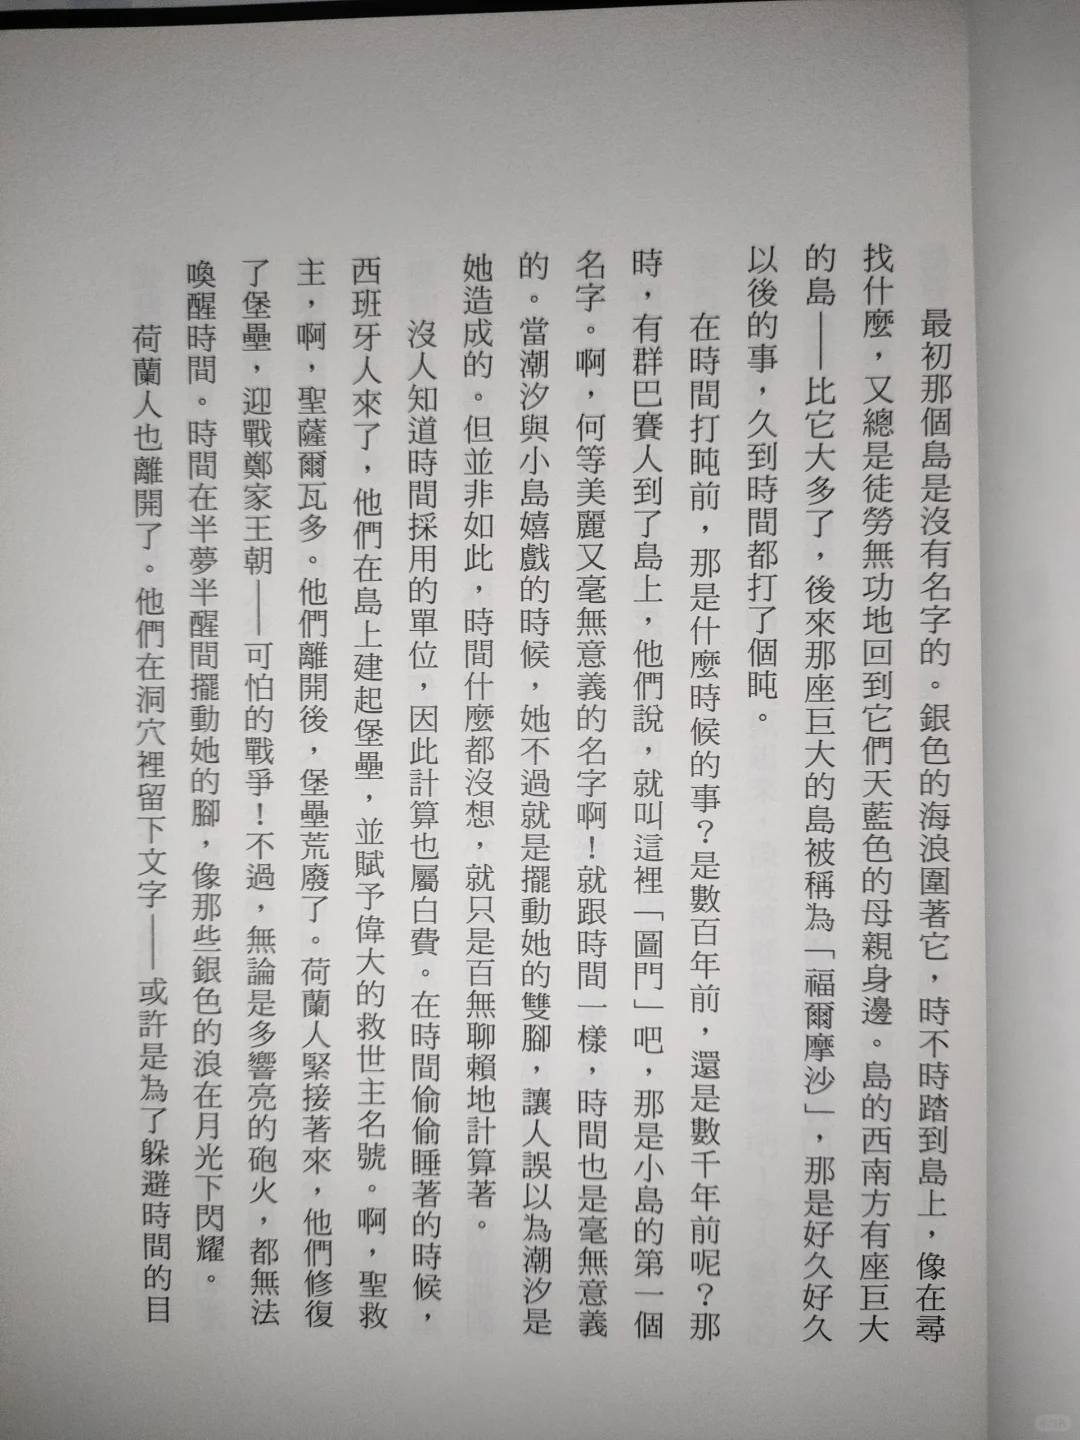 最初那個島是沒有名字的。銀色的海浪圍著它，時不時踏到島上，像在尋
找什麼，又總是徒勞無功地回到它們天藍色的母親身邊。島的西南方有座巨大
的島——比它大多了，後來那座巨大的島被稱為「福爾摩沙」，那是好久好久
以後的事，久到時間都打了個盹。
在時間打盹前，那是什麼時候的事？是數百年前，還是數千年前呢？那
時，有群巴賽人到了島上，他們說，就叫這裡「圖門」吧，那是小島的第一個
名字。啊，何等美麗又毫無意義的名字啊！就跟時間一樣，時間也是毫無意義
的。當潮汐與小島嬉戲的時候，她不過就是擺動她的雙腳，讓人誤以為潮汐是
她造成的。但並非如此，時間什麼都沒想，就只是百無聊賴地計算著。
沒人知道時間採用的單位，因此計算也屬白費。在時間偷偷睡著的時候，
西班牙人來了，他們在島上建起堡壘，並賦予偉大的救世主名號。啊，聖救
主，啊，聖薩爾瓦多。他們離開後，堡壘荒廢了。荷蘭人緊接著來，他們修復
了堡壘，迎戰鄭家王朝——可怕的戰爭！不過，無論是多響亮的砲火，都無法
喚醒時間。時間在半夢半醒間擺動她的腳，像那些銀色的浪在月光下閃耀。
荷蘭人也離開了。他們在洞穴裡留下文字——或許是為了躲避時間的目